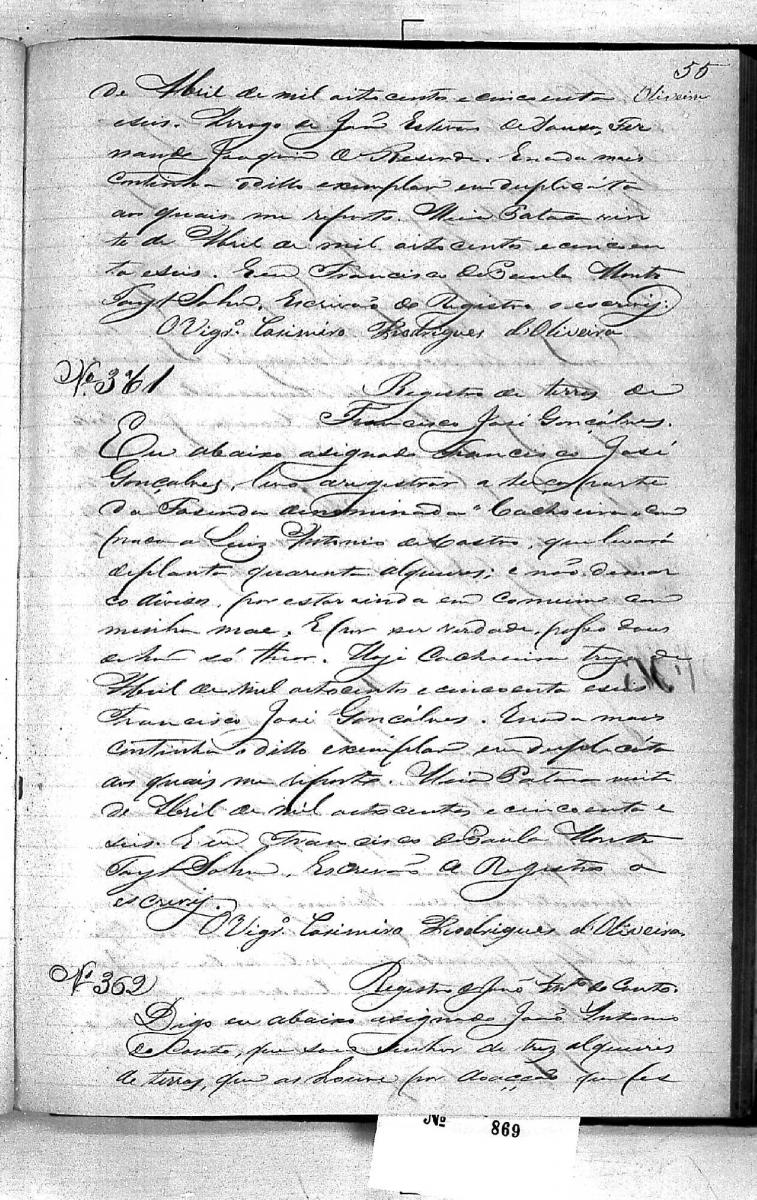 55
Oliveira
de Abril de mil oitocentos e cincoenta
e seis. Arrogo de João Esteves de Souza, Fer
nando Joaquim de Resende. E nada mais
continha o ditto exemplar em duplicáta
aos quais me reporto. Meia Pataca vin
te de Abril de mil oitocentos e cincoen
ta e seis. E eu Francisco de Paula
Escrivão do Registro o escrevij.
O Vigrº. Casimiro Rodrigues d'Oliveira
Nº 361
Registro de terras de
Francisco José Gonçálves.
Eu abaixo asignado Francisco José
Gonçalves, levo a registrar a terça parte
da Fasenda denominada "Cachoeira
a Luiz Antonio de Castro, que levará
de planta quarenta alqueires; e não demar
co divisas, por estar ainda em comum com
minha mae. E por ser verdade, paço dous
de hum só theor. Hoje Cachoeira trez de
Abril de mil oitocentos e cincoenta e seis
Francisco José Gonçálves. E nada mais
continha o ditto exemplar em duplicáta
aos quais me reporto. Meia Pataca vinte
de Abril de mil oitocentos e cincoenta e
seis. E eu Francisco de Paula
Escrivão do Registro o
escrevij.
O Vigrº. Casimiro Rodrigues d'Oliveira.
Nº 362
Registro de João Antº do Couto.
Digo eu abaixo asignado João Antonio
do Couto, que sou Senhor de trez alqueires
de terras, que as houve por doacção que fes
Nº 869